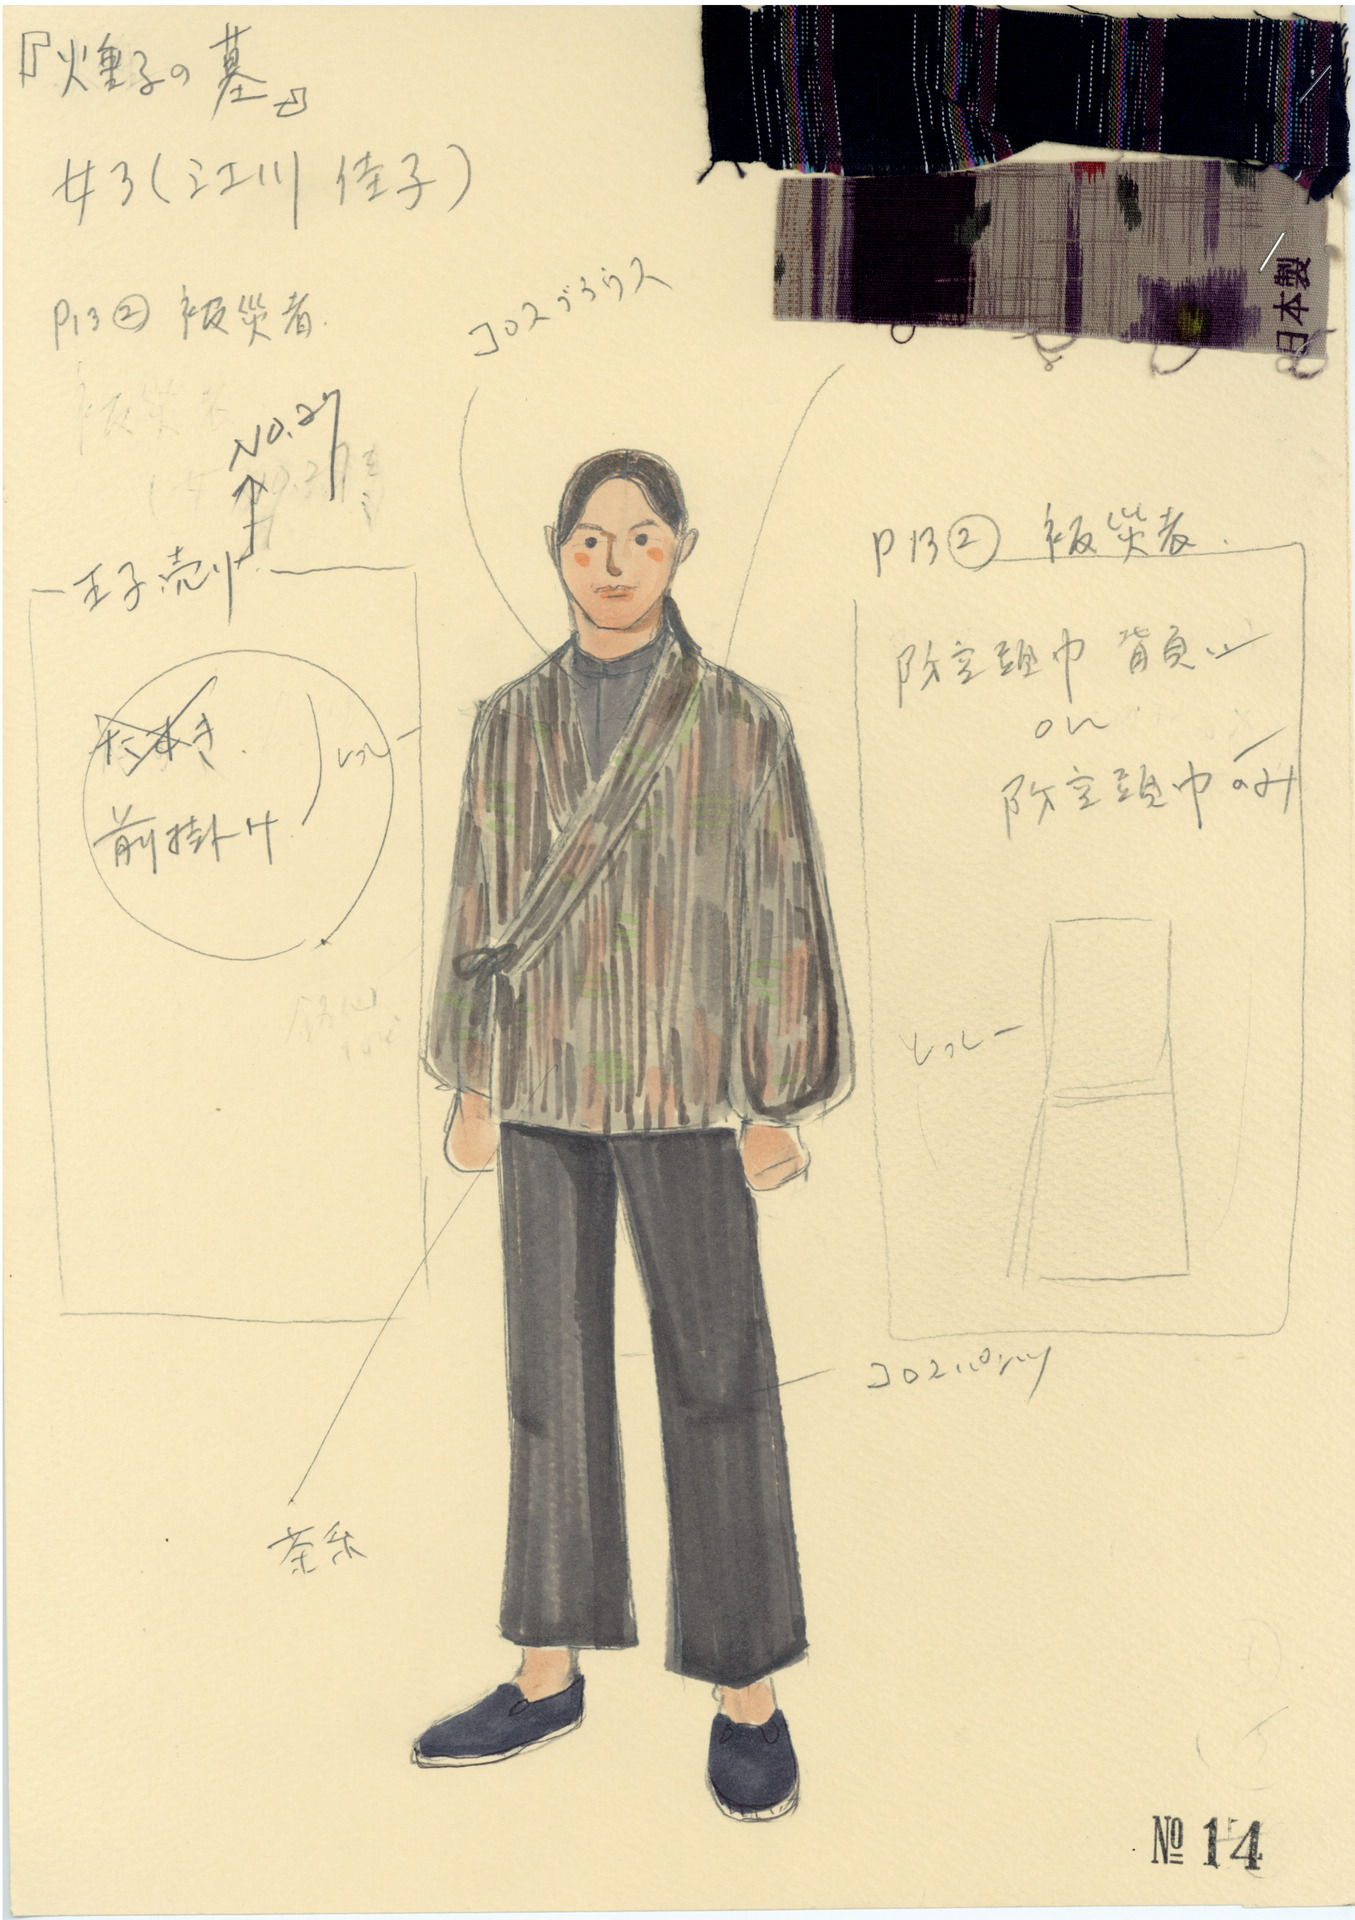 『火垂るの墓』
女3(江川 佳子)
P13② 被災者.
コロスブラウス
日本製
NO.27
玉子売り
たすき.
前掛け.
とっしー
P13② 被災者.
防空頭巾 背負い
or
防空頭巾のみ
とっしー
コロスパンツ
茶系
№ 14